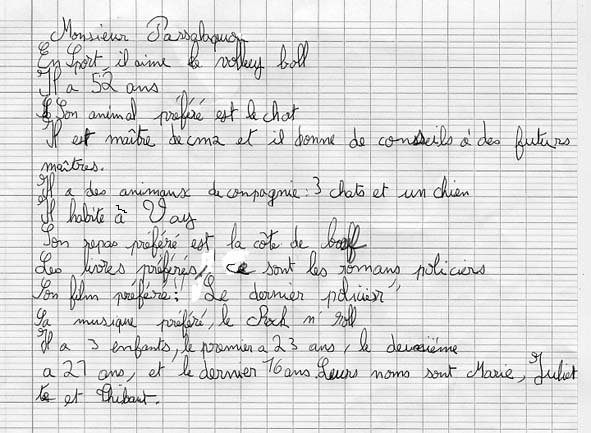 Monsieur Passalaqua
En Sport, il aime le volley boll
Il a 52 ans
Son animal préféré est le chat
Il est maître de cm2 et il donne de conseils à des futurs
maîtres.
Il a des animaux de compagnie : 3 chats et un chien
Il habite à Vay
Son repas préféré est la côte de bœff
Les livres préférés, ce sont les romans policiers
Son film préféré : "Le dernier policier"
Sa musique préféré, le Rock n' Roll
Il a 3 enfants, le premier a 23 ans, le deuxième
a 21 ans, et le dernier 16 ans. Leurs noms sont Marie, Juliet
te et Thibaut.